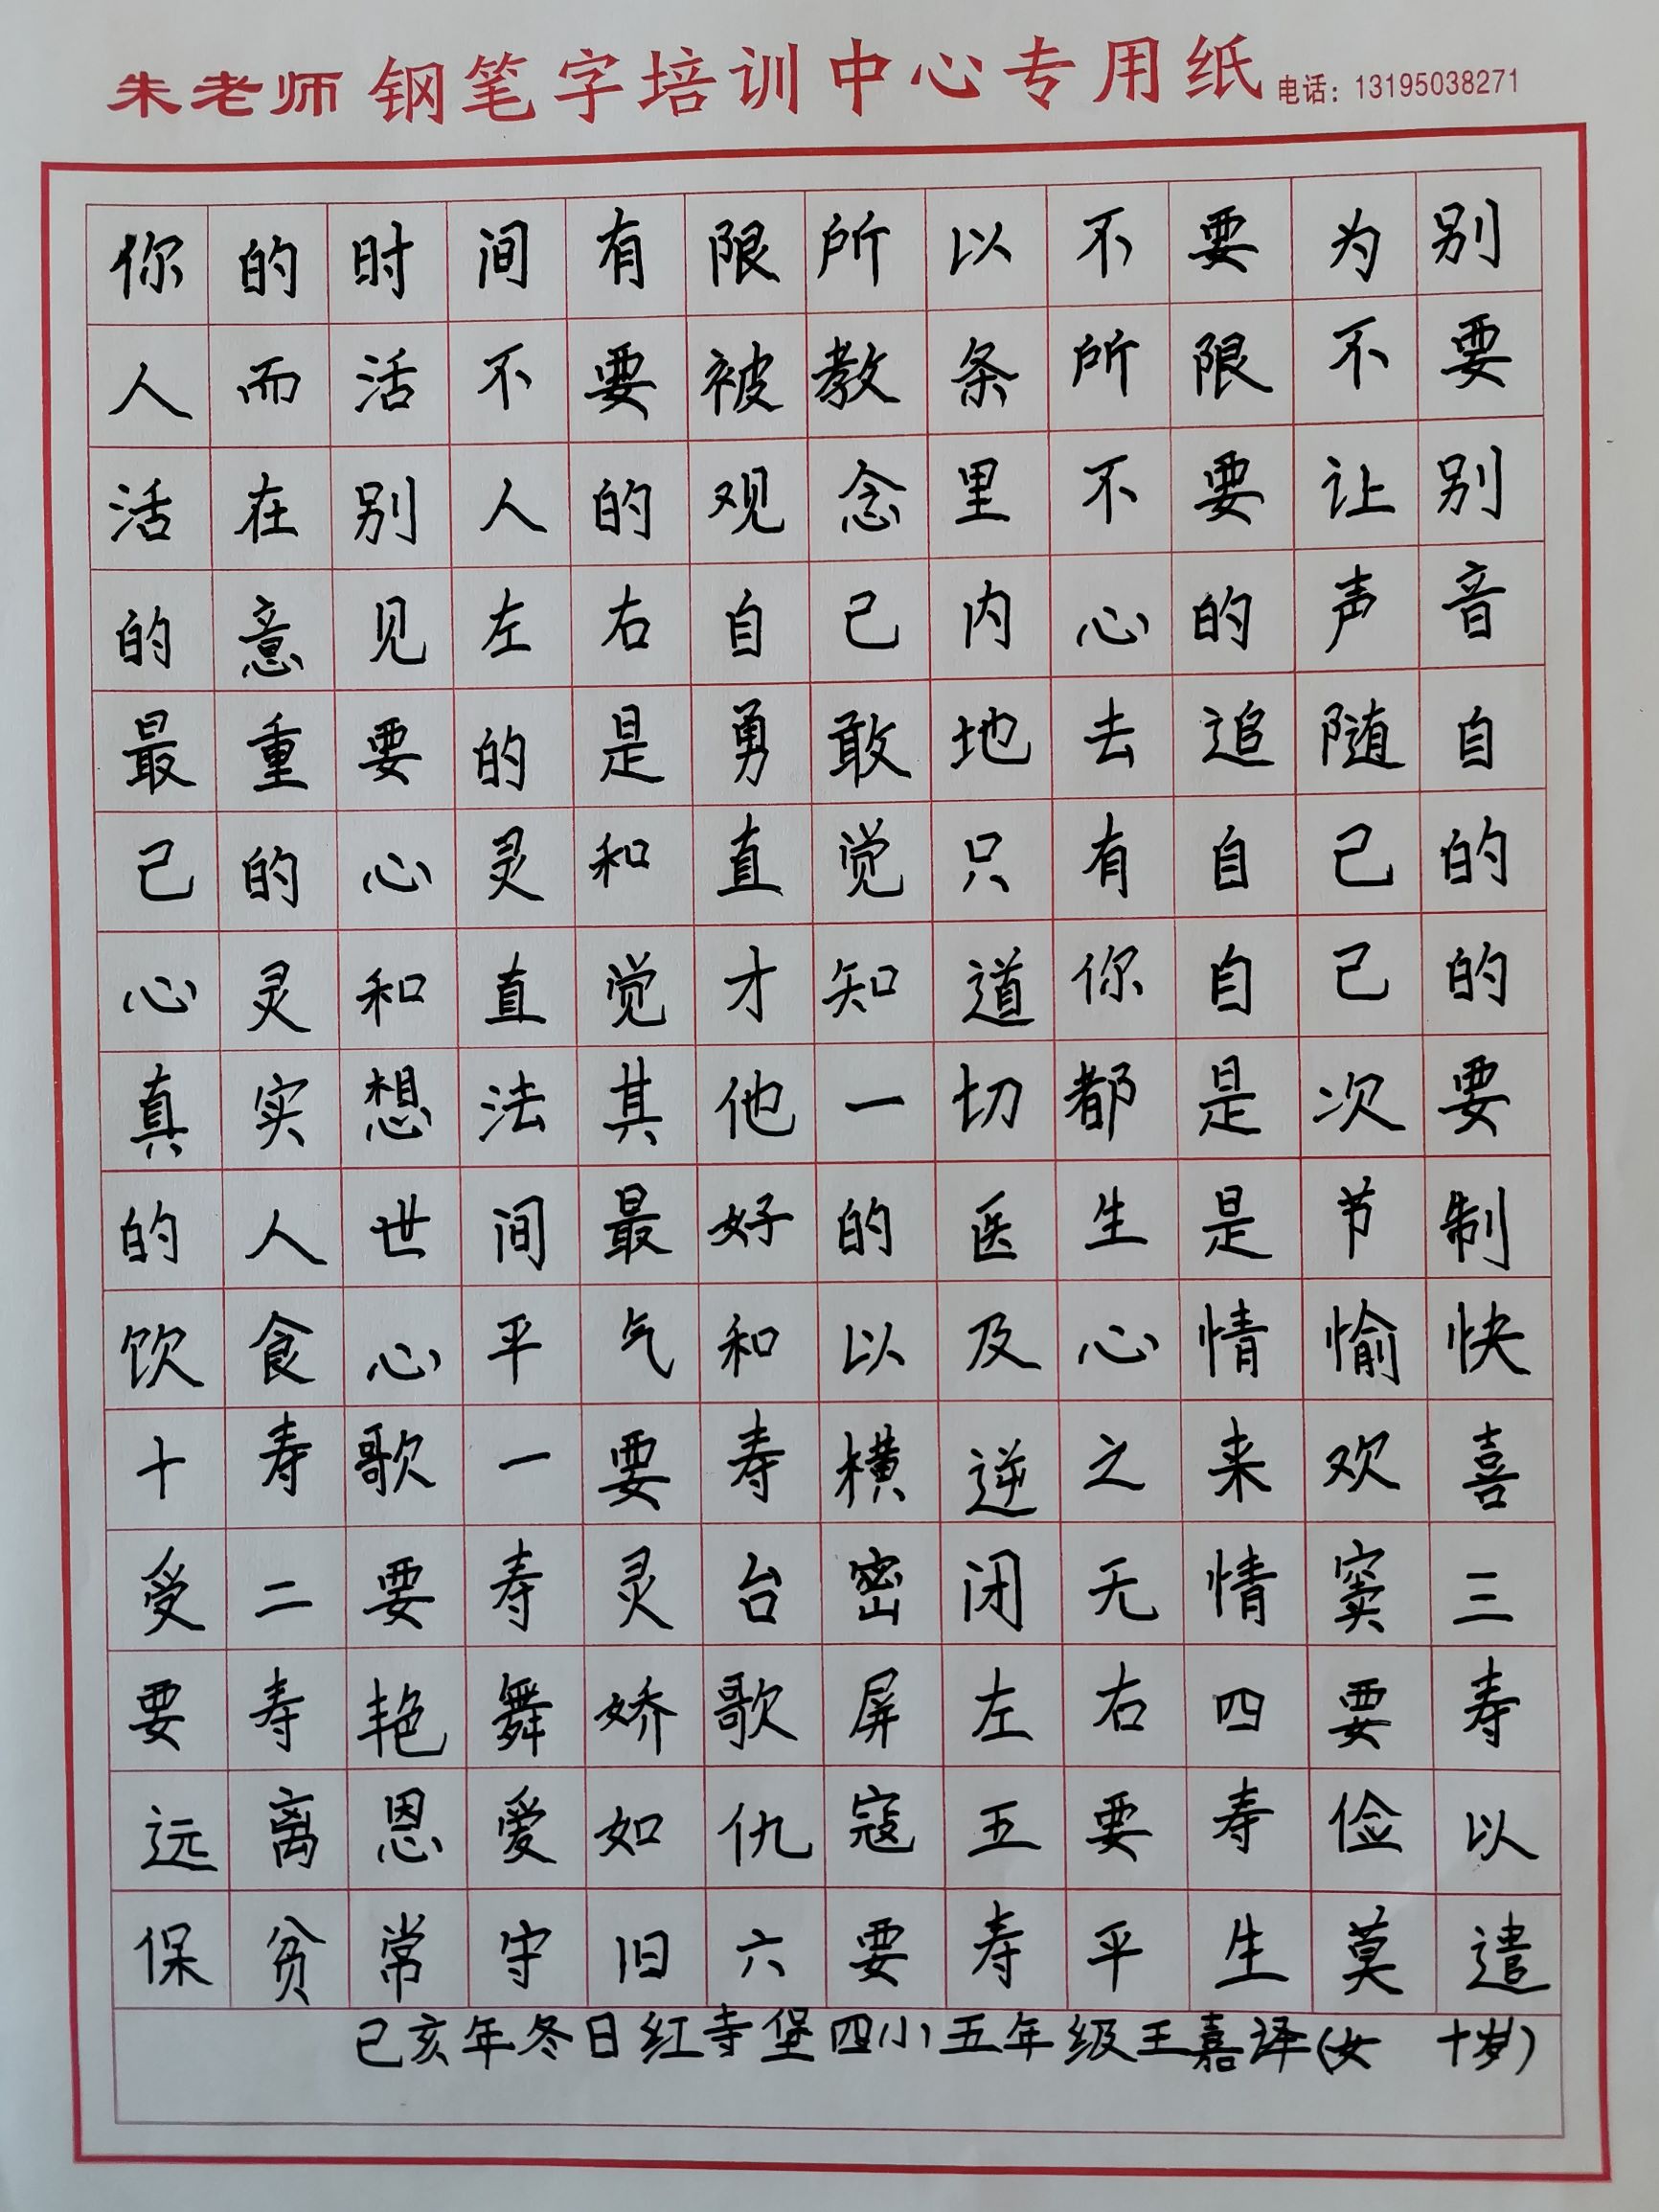 朱老师 钢笔字培训中心专用纸 电话：13195038271
你的时间有限所以不要为别
人而活不要被教条所限不要
活在别人的观念里不要让别
的意见左右自己内心的声音
最重要的是勇敢地去追随自
己的心灵和直觉只有自己的
心灵和直觉才知道你自己的
真实想法其他一切都是次要
的人世间最好的医生是节制
饮食心平气和以及心情愉快
十寿歌一要寿横逆之来欢喜
受二要寿灵台密闭无情窦三
要寿艳舞娇歌屏左右四要寿
远离恩爱如仇寇五要寿俭以
保贫常守旧六要寿平生莫遣
己亥年冬日红寺堡四小五年级王嘉译(女 十岁)